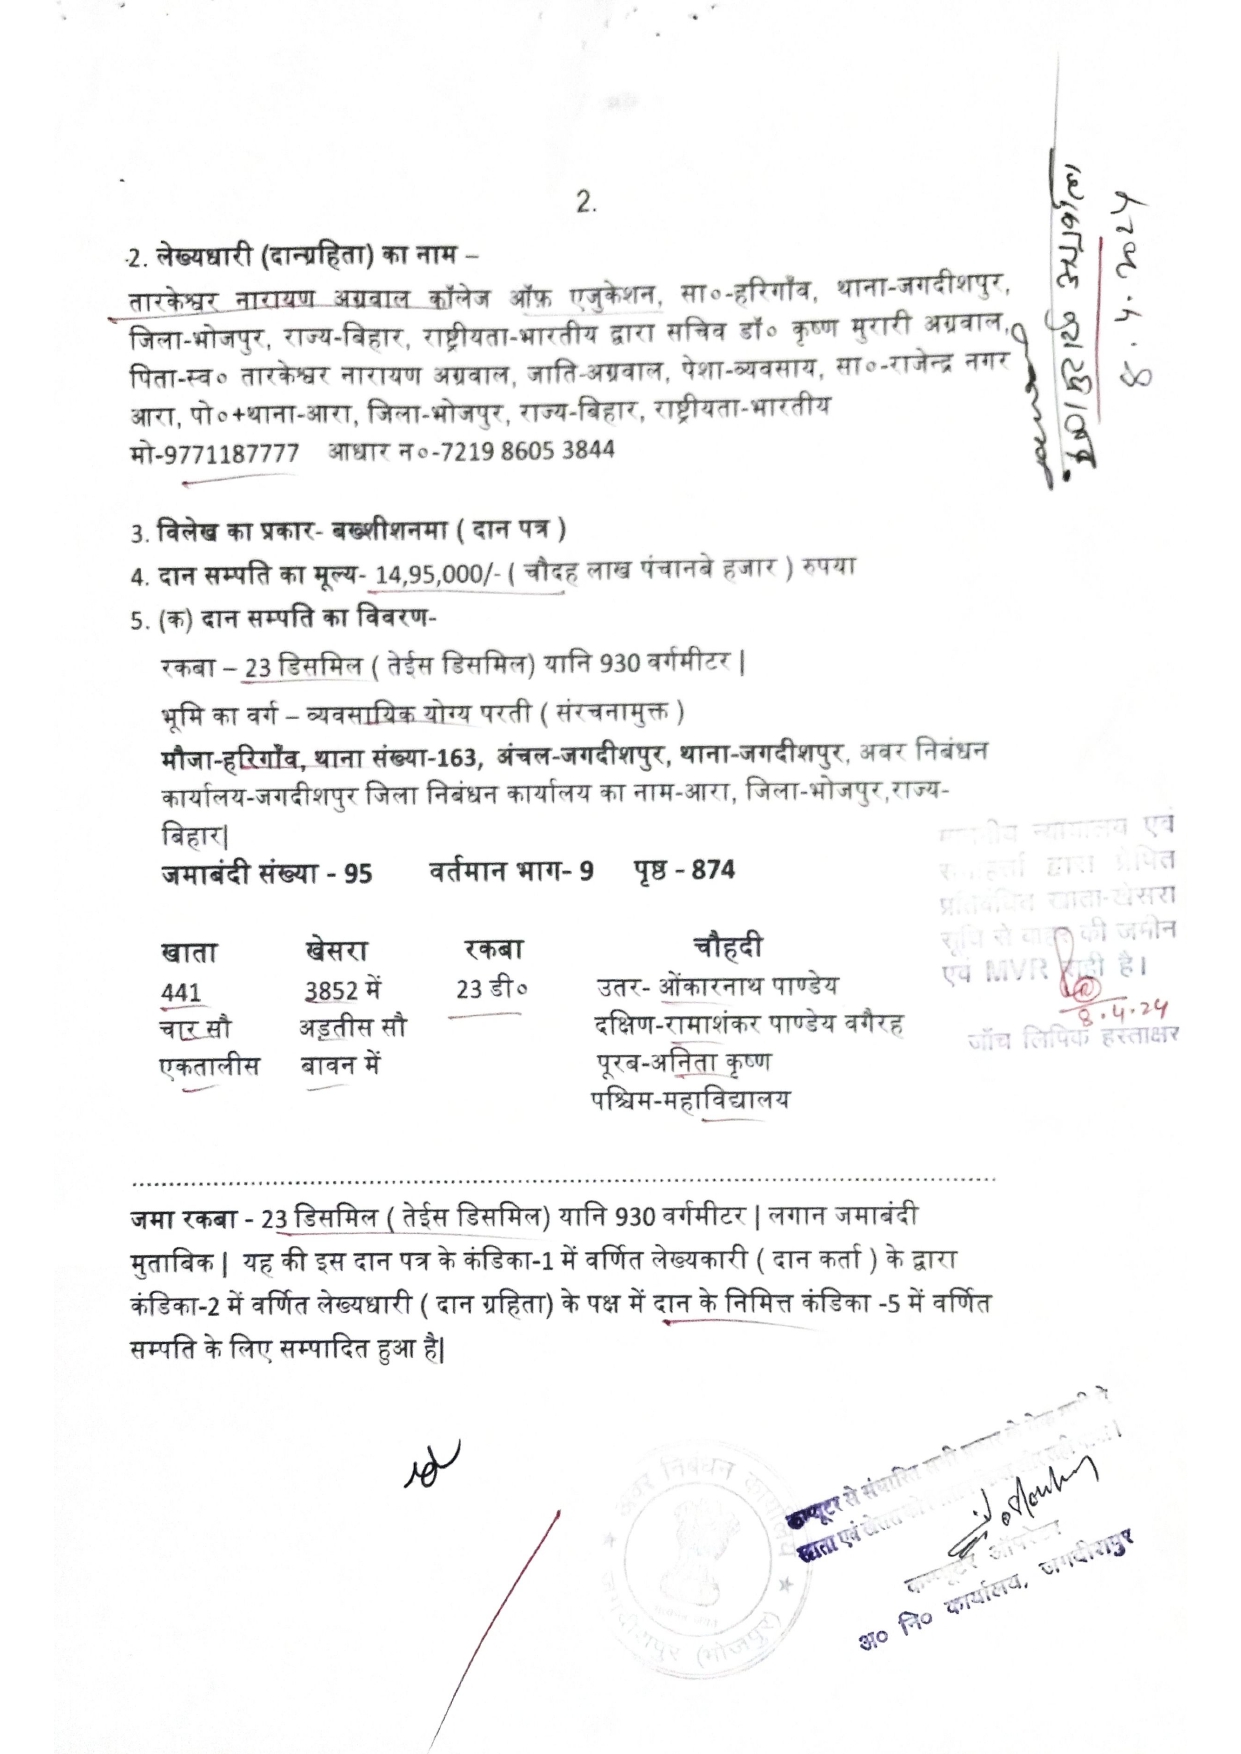 2.
2. लेख्यधारी (दानग्रहिता) का नाम –
तारकेश्वर नारायण अग्रवाल कॉलेज ऑफ़ एजुकेशन, सा०-हरिगाँव, थाना-जगदीशपुर,
जिला-भोजपुर, राज्य-बिहार, राष्ट्रीयता-भारतीय द्वारा सचिव डॉ० कृष्ण मुरारी अग्रवाल,
पिता-स्व० तारकेश्वर नारायण अग्रवाल, जाति-अग्रवाल, पेशा-व्यवसाय, सा०-राजेन्द्र नगर
आरा, पो०+थाना-आरा, जिला-भोजपुर, राज्य-बिहार, राष्ट्रीयता-भारतीय
मो-9771187777 आधार न०-7219 8605 3844
3. विलेख का प्रकार- बख्शीशनमा ( दान पत्र )
4. दान सम्पति का मूल्य- 14,95,000/- ( चौदह लाख पंचानबे हजार ) रुपया
5. (क) दान सम्पति का विवरण-
रकबा – 23 डिसमिल ( तेईस डिसमिल) यानि 930 वर्गमीटर |
भूमि का वर्ग – व्यवसायिक योग्य परती ( संरचनामुक्त )
मौजा-हरिगाँव, थाना संख्या-163, अंचल-जगदीशपुर, थाना-जगदीशपुर, अवर निबंधन
कार्यालय-जगदीशपुर जिला निबंधन कार्यालय का नाम-आरा, जिला-भोजपुर,राज्य-
बिहार|
जमाबंदी संख्या - 95 वर्तमान भाग- 9 पृष्ठ - 874
न्यायालय एवं
द्वारा प्रेषित
प्रतिबंधित खाता-खेसरा
सूचि से बाहर की जमीन
एवं MVR सही है।
8.4.24
जाँच लिपिक हस्ताक्षर
खाता खेसरा रकबा चौहदी
441 3852 में 23 डी० उतर- ओंकारनाथ पाण्डेय
चार सौ अड़तीस सौ दक्षिण-रामाशंकर पाण्डेय वगैरह
एकतालीस बावन में पूरब-अनिता कृष्ण
पश्चिम-महाविद्यालय
जमा रकबा - 23 डिसमिल ( तेईस डिसमिल) यानि 930 वर्गमीटर | लगान जमाबंदी
मुताबिक | यह की इस दान पत्र के कंडिका-1 में वर्णित लेख्यकारी ( दान कर्ता ) के द्वारा
कंडिका-2 में वर्णित लेख्यधारी ( दान ग्रहिता) के पक्ष में दान के निमित्त कंडिका -5 में वर्णित
सम्पति के लिए सम्पादित हुआ है|
अवर निबंधन कार्यालय
जगदीशपुर (भोजपुर)
कम्प्यूटर से संधारित
खाता एवं
कम्प्यूटर ऑपरेटर
अ० नि० कार्यालय, जगदीशपुर